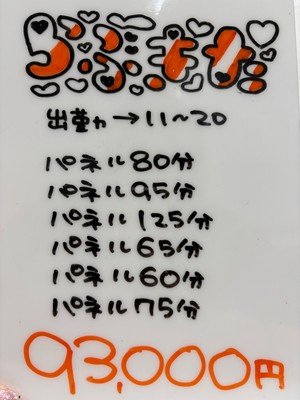 出勤→11~20
パネル80分
パネル95分
パネル125分
パネル65分
パネル60分
パネル75分
93,000円